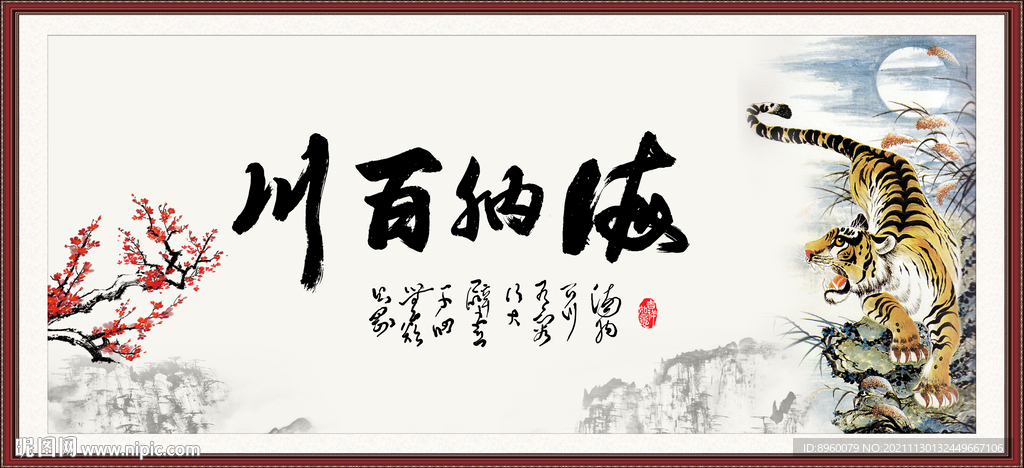 海纳百川
海纳
百川
有容
乃大
壁立
千仞
無欲
则刚
昵图网 www.nipic.com
ID:8960079 NO:20211130132449667106